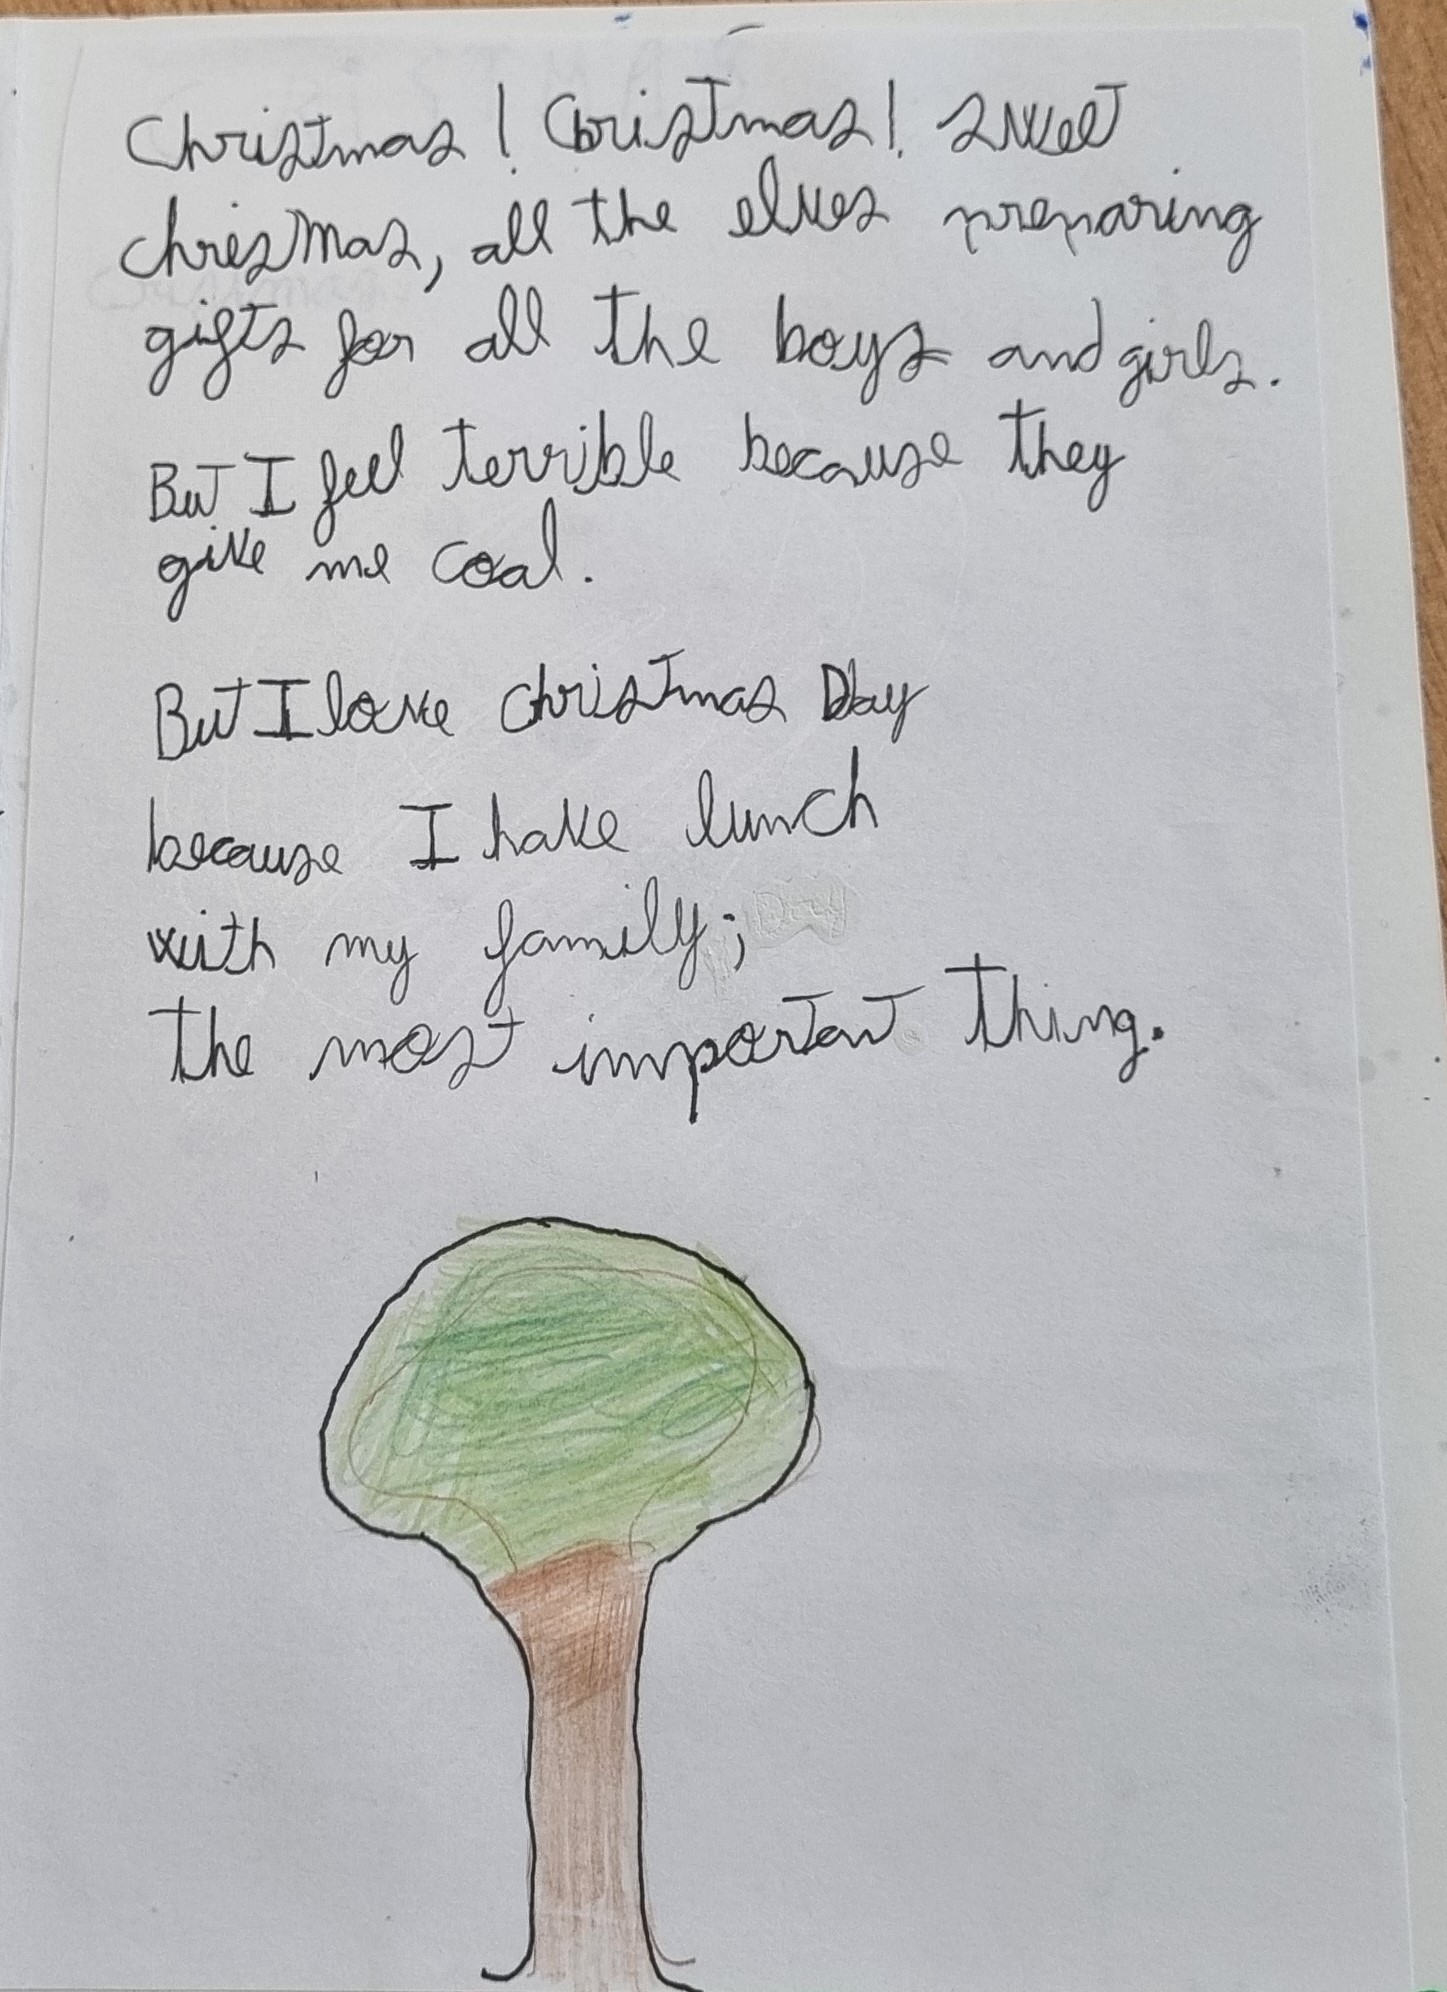 Christmas! Christmas! Sweet
chresmas, all the elves preparing
gifts for all the boys and girls.
But I feel terrible because they
give me coal.
But I love christmas Day
because I have lunch
with my family;
the most important thing.